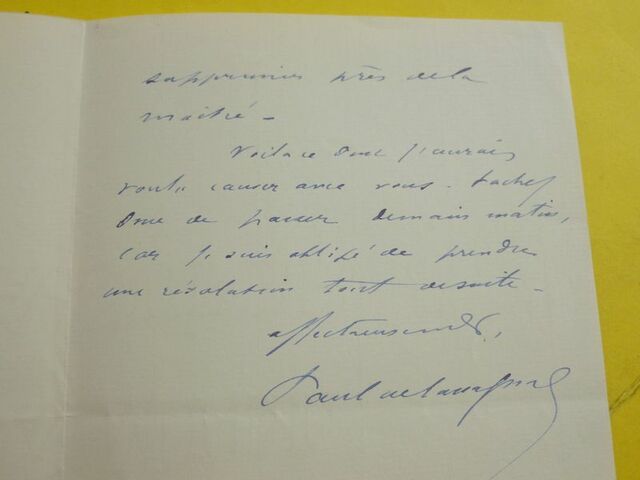 supprimer près de la
moitié -
Voilà ce dont j'aurais
voulu causer avec vous. Tachez
donc de passer demain matin,
car je suis obligé de prendre
une résolution tout de suite -
affectueusement,
Paul de